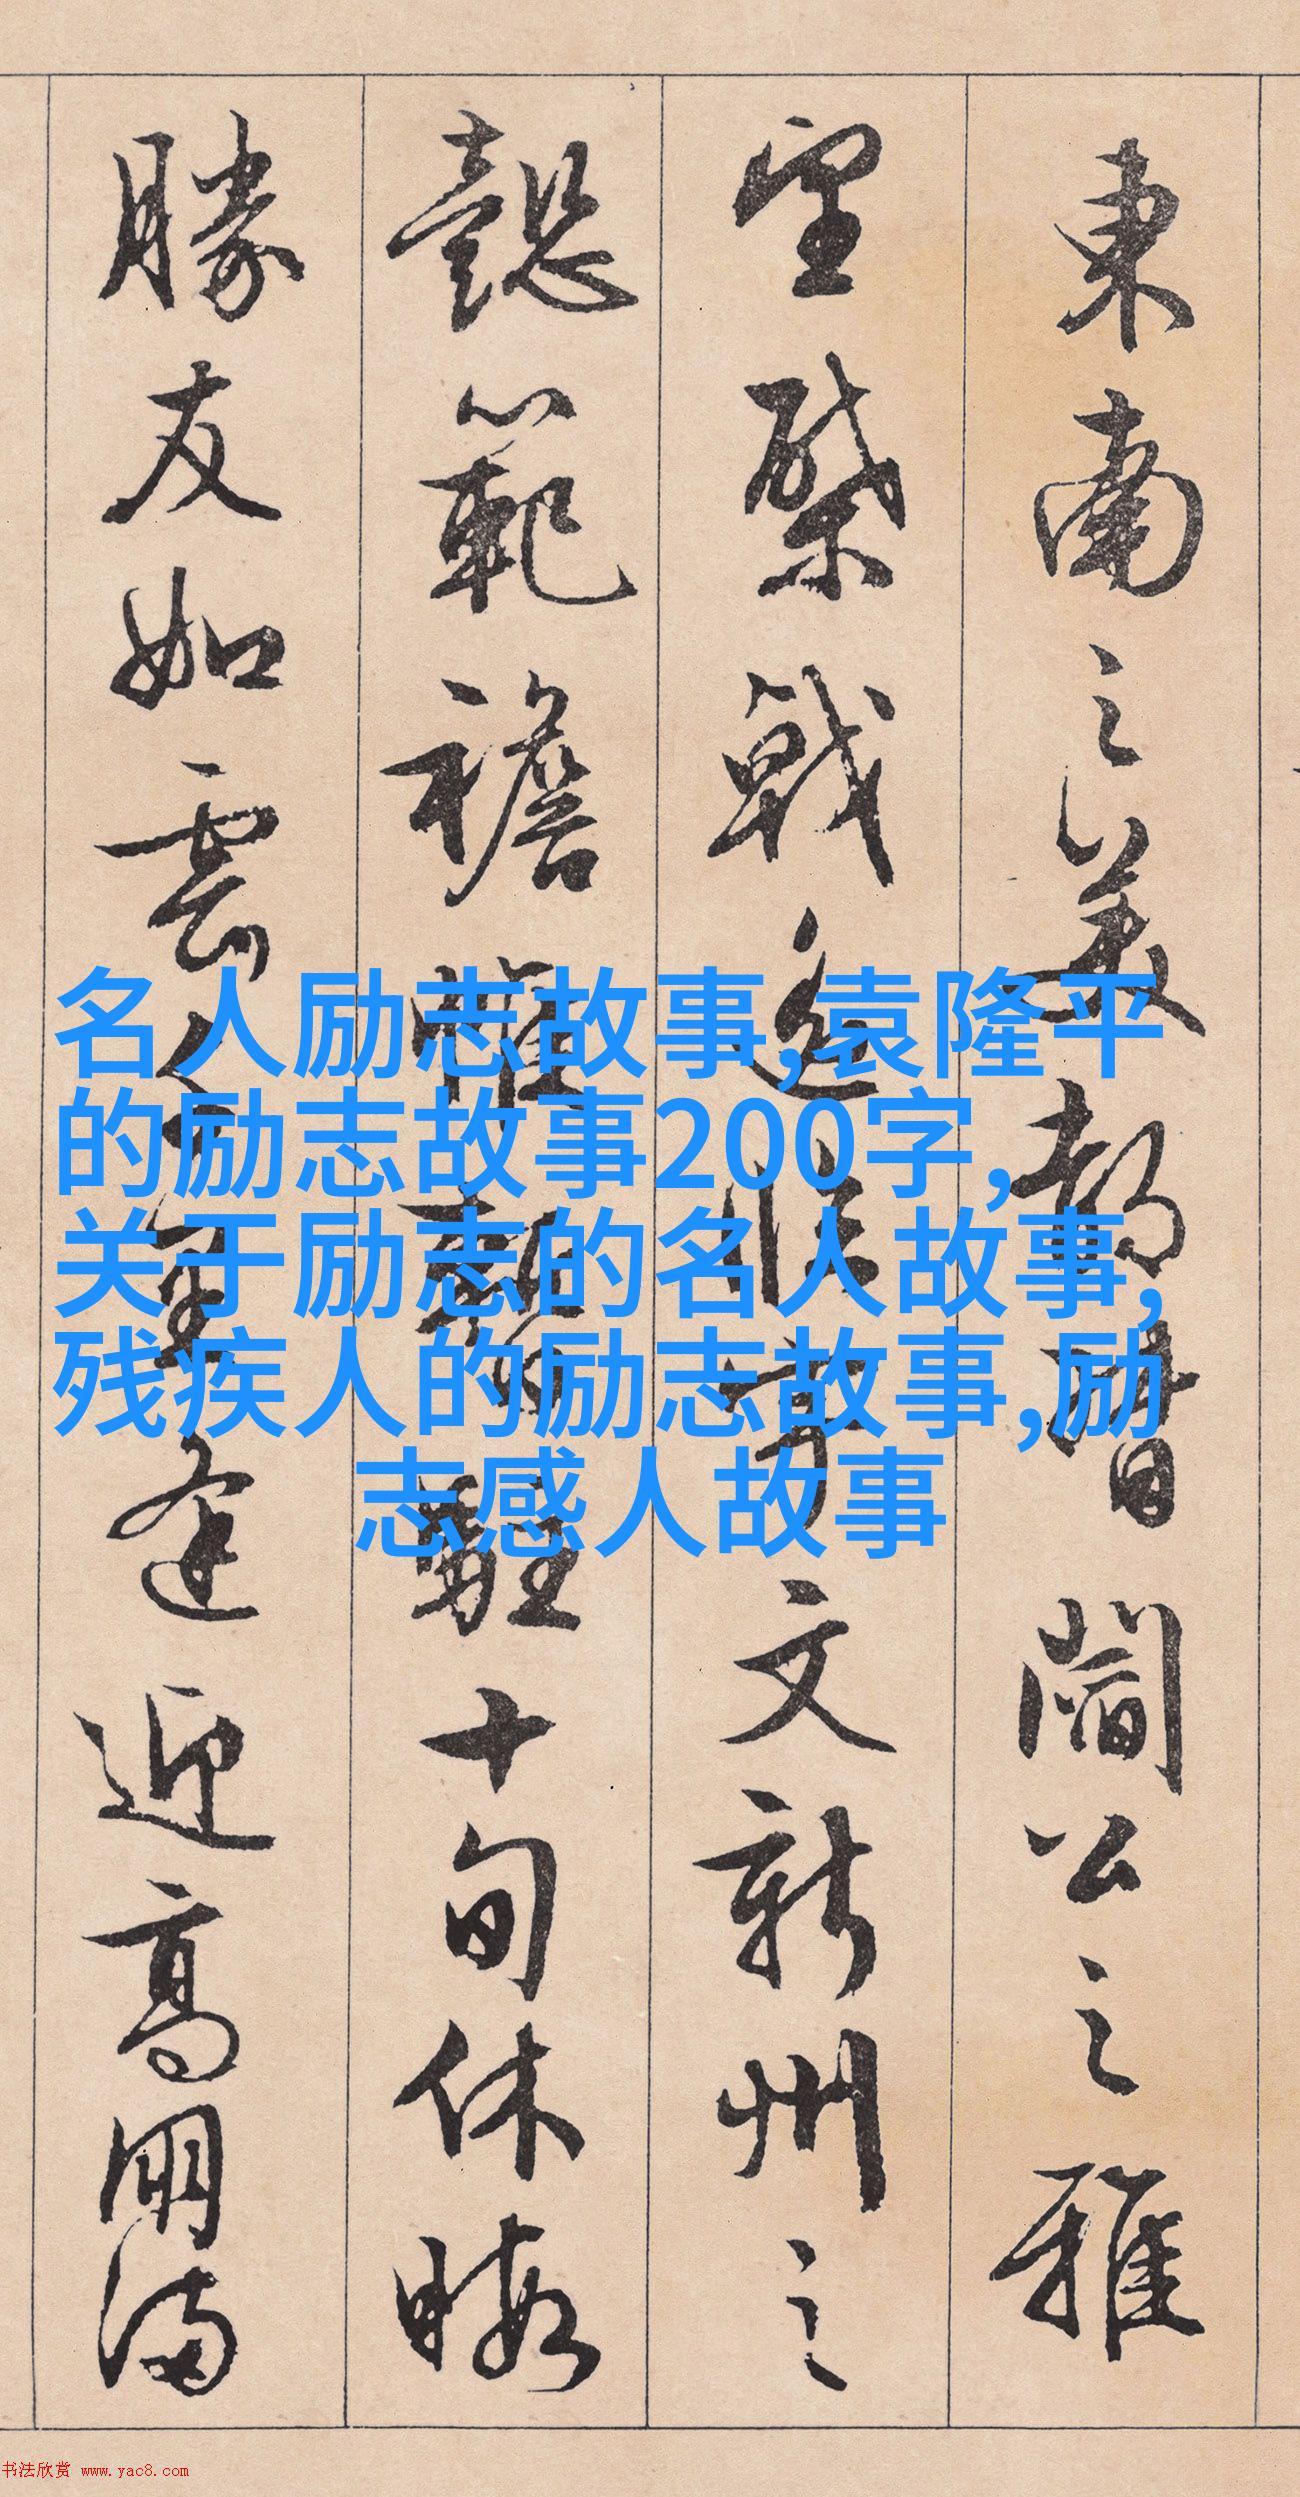 東南之美都督閻公之雅
望棨戟遥臨宇文新州之
懿範襜帷暫駐十旬休暇
勝友如雲千里逢迎高朋滿
名人励志故事,袁隆平
的励志故事200字,
关于励志的名人故事,
残疾人的励志故事,励
志感人故事
书法欣赏 www.yac8.com